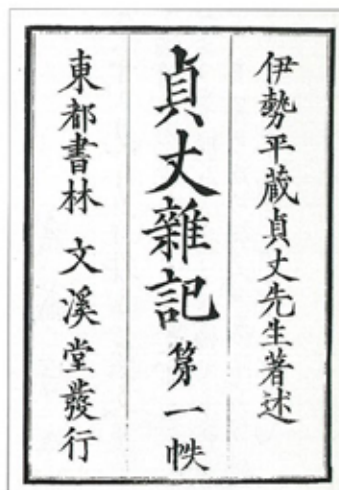 伊勢平蔵貞丈先生著述
貞丈雜記 第一帙
東都書林 文溪堂發行